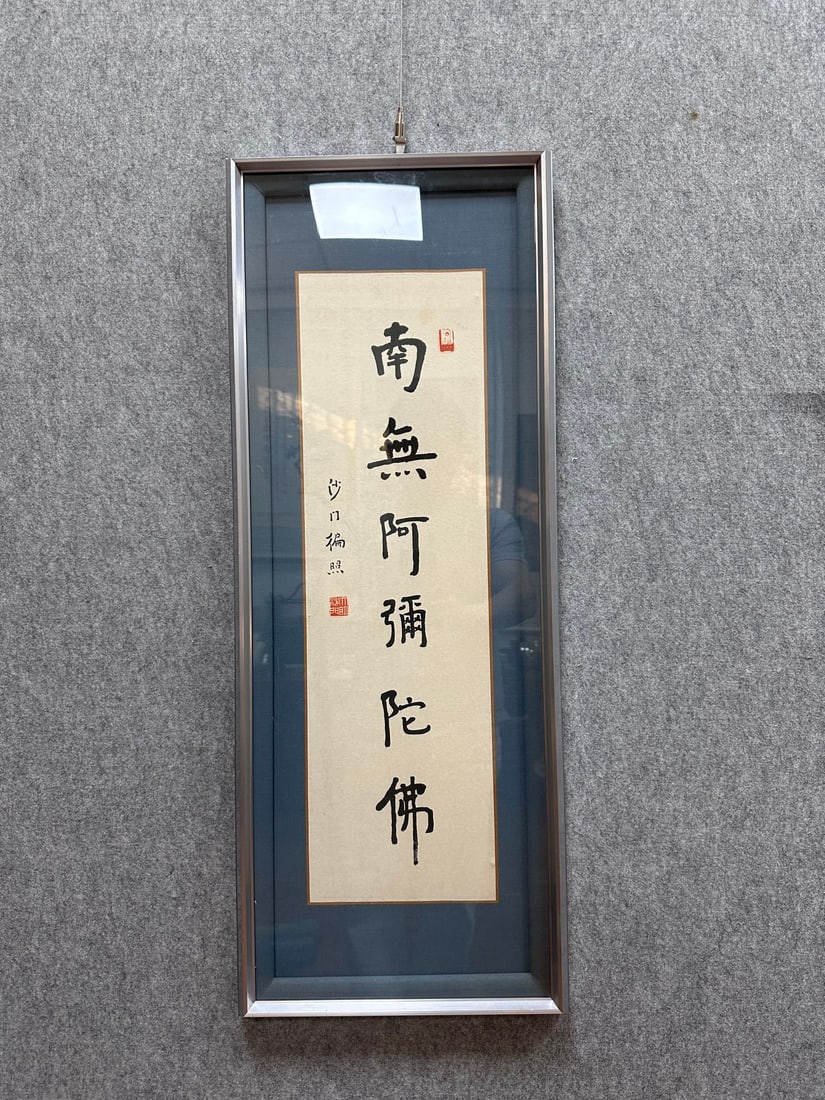 南無阿彌陀佛
沙門徧照